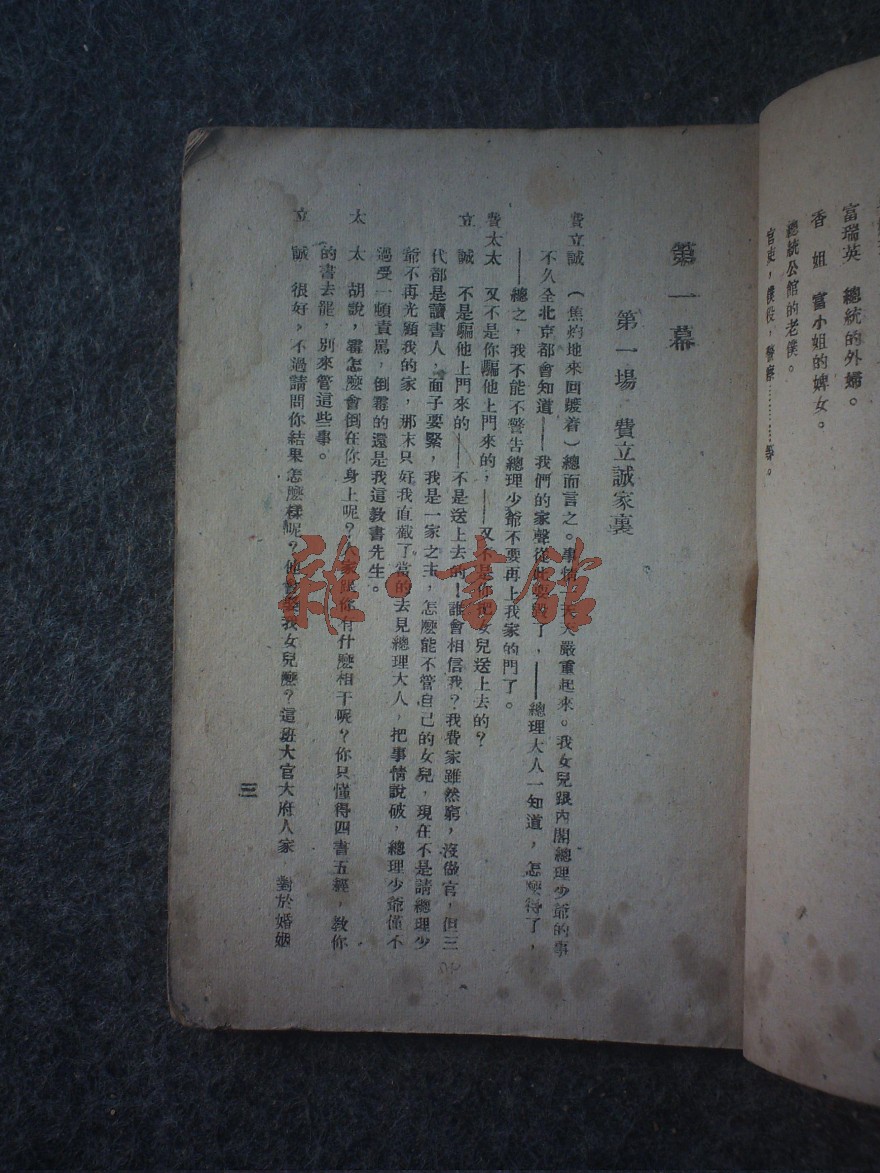 富瑞英　總統的外婦。
香　姐　富小姐的婢女。
總統公館的老僕。
官吏，僕役，警察………等。
第一幕
第一場　費立誠家裏
費立誠　（焦灼地來回踱着）總而言之。事情一天天嚴重起來。我女兒跟內閣總理少爺的事
不久全北京都會知道——我們的家聲從此要毀了，——總理大人一知道，怎麽得了，
——總之，我不能不警告總理少爺不要再上我家的門了。
費太太　又不是你騙他上門來的，——又不是你把女兒送上去的？
立　誠　不是騙他上門來的——不是送上去的！誰會相信我？我費家雖然窮，沒做官，但三
代都是讀書人，面子要緊，我是一家之主，怎麽能不管自己的女兒，現在不是請總理少
爺不再光顧我的家，那末只好我直截了當的去見總理大人，把事情說破，總理少爺僅不
過受一頓責罵，倒霉的還是我這教書先生。
太　太　胡說，霉怎麽會倒在你身上呢？跟你有什麽相干呢？你只懂得四書五經，教你
的書去罷，別來管這些事。
立　誠　很好，不過請問你結果怎麽樣呢？他會娶我女兒麽？這班大官大府人家　對於婚姻
三
雜·書館